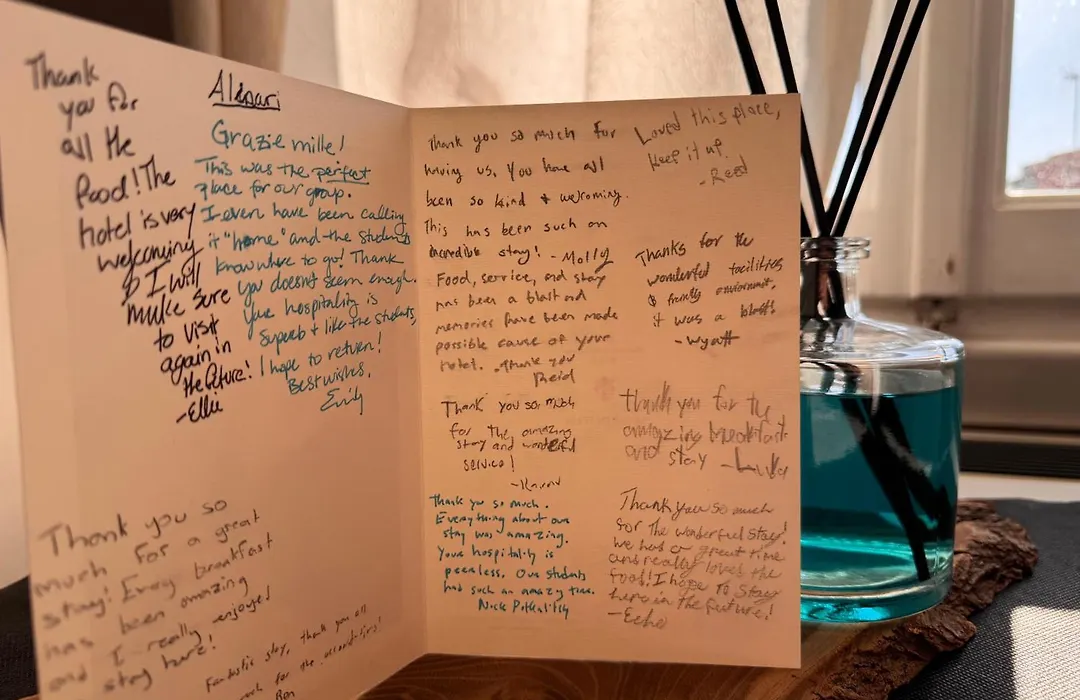 Thank
you for
all the
food! The
hotel is very
welcoming
& I will
make sure
to visit
again in
the future!
-Ellie
Grazie mille!
This was the perfect
place for our group.
I even have been calling
it "home" and the students
know where to go! Thank
you doesn't seem enough.
Your hospitality is
superb & like the students,
I hope to return!
Best wishes,
Emily
Thank you so
much for a great
stay! Every breakfast
has been amazing
and I really enjoyed
stay here!
Fantastic stay, thank you all
much for the
Ben
Thank you so much for
having us. You have all
been so kind & welcoming.
This has been such an
incredible stay! -Molly
Food, service, and stay
has been a blast and
memories have been made
possible cause of your
hotel. Thank you
Reid
Thank you so much
for the amazing
stay and wonderful
service!
Thank you so much.
Everything about our
stay was amazing.
Your hospitality is
peerless. Our students
had such an amazing time.
Nick
Loved this place,
keep it up.
-Reed
Thanks for the
wonderful facilities
& friendly environment,
it was a blast!
-Wyatt
thank you for the
amazing breakfast
and stay -Luka
Thank you so much
for the wonderful stay!
We had a great time
and really loves the
food! I hope to stay
here in the future!
-Echo